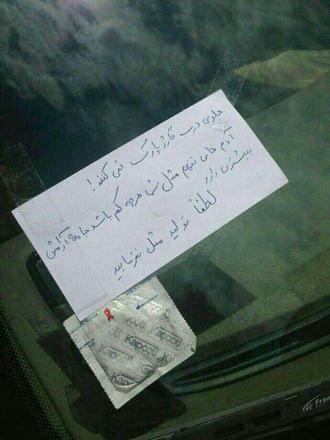 جلوی درب گاراژ پارک نمی کنند!
آدم های نفهم مثل شما هرچه کم باشد جامعه آرامش
بیشتری دارد
لطفاً تولید مثل نفرمایید
Kapoot
Kapoot
Kapoot
Fran